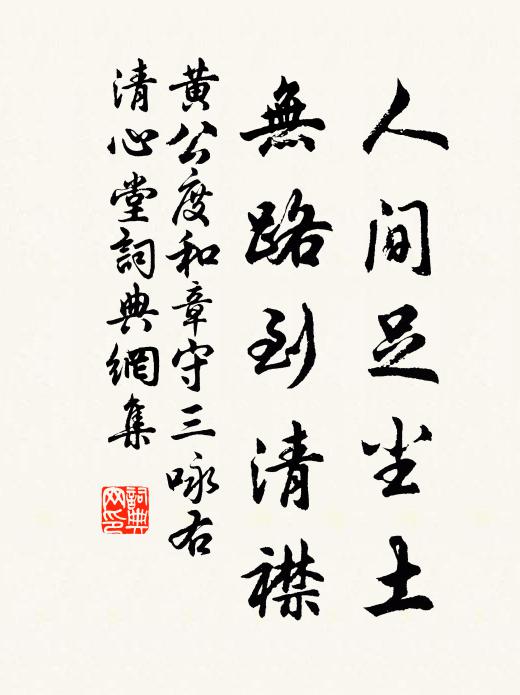 人間足尘土
無路到清襟
黄公度和章守三咏右
清心堂詞典網集
詞典
网印